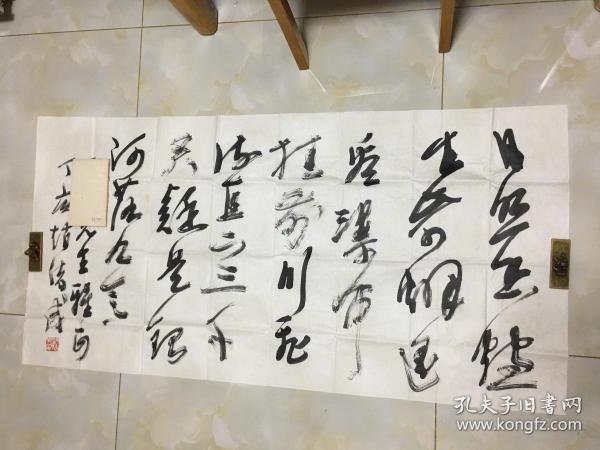 日照香炉
生紫烟遥
看瀑布
挂前川飞
流直下三千
尺疑是银
河落九天
先生雅正
丁亥
孔夫子旧书网
www.kongfz.com